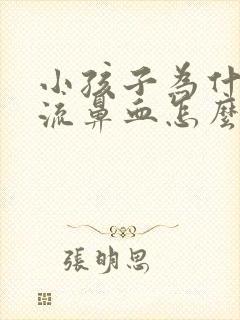 小孩子為什
流鼻血怎麼
張明思